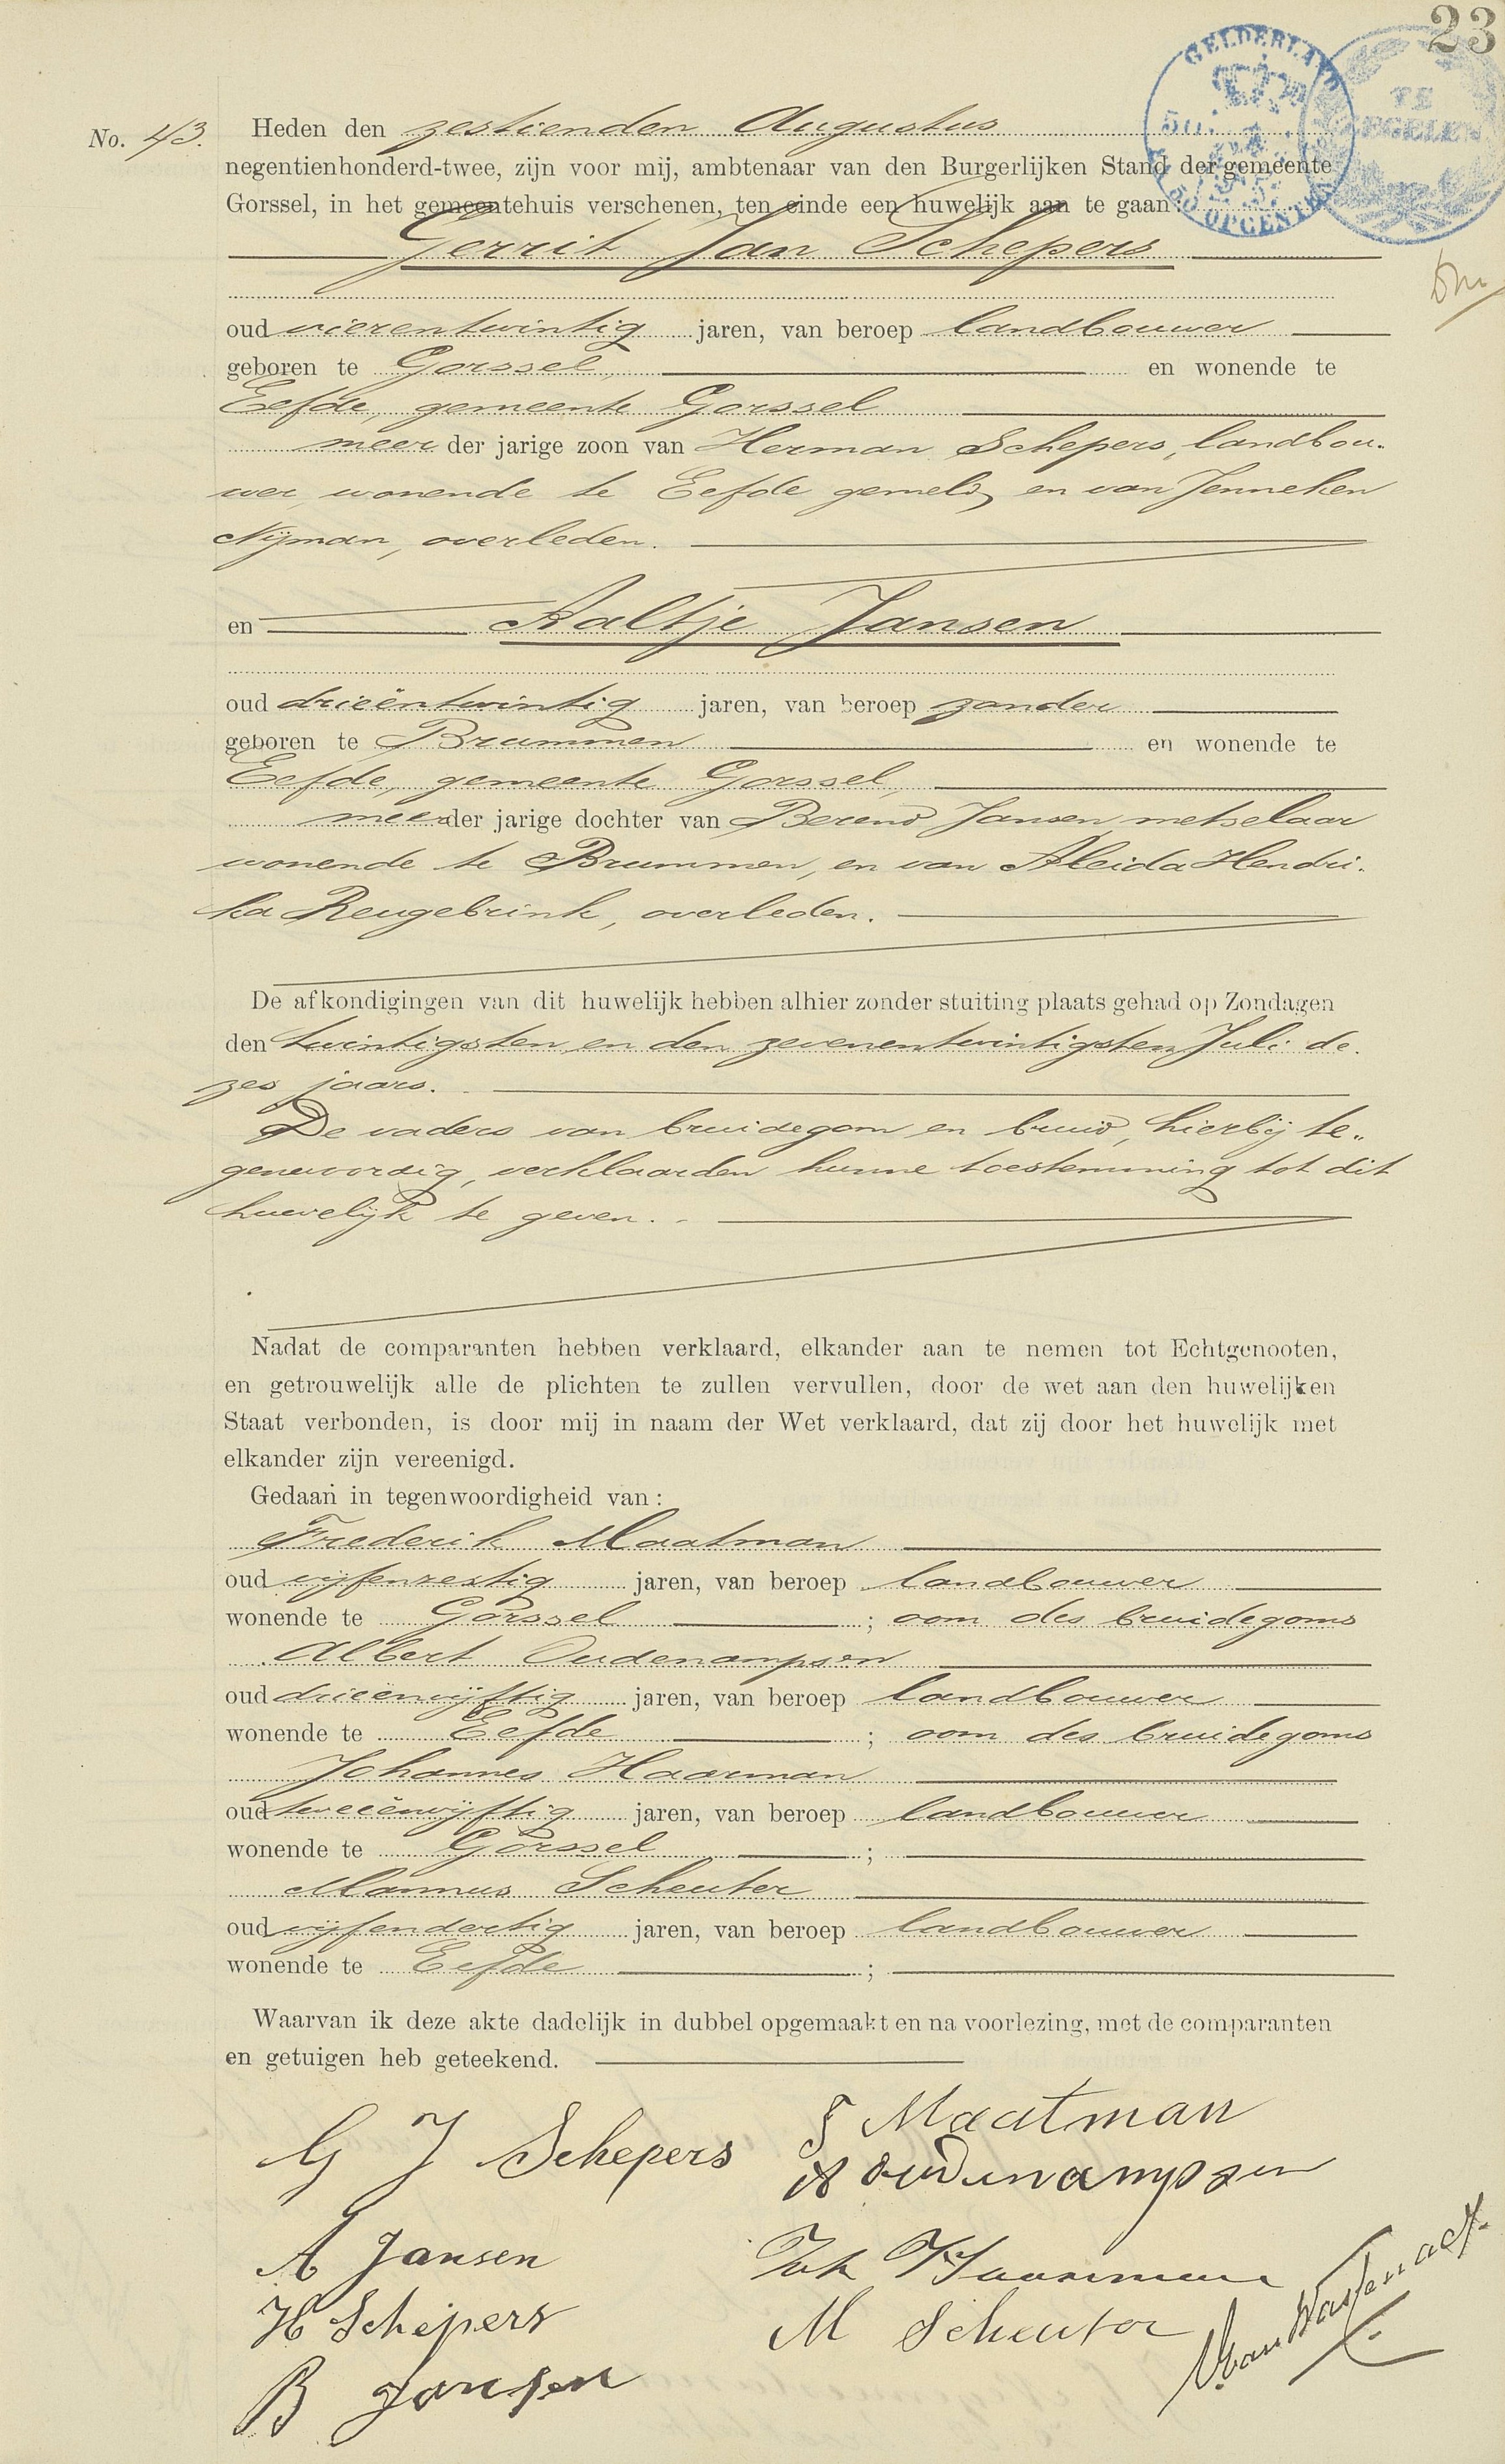 23
GELDERLAND
50
50 OPCENTEN
TE
ZEGELEN
No. 43. Heden den zestienden Augustus
negentienhonderd-twee, zijn voor mij, ambtenaar van den Burgerlijken Stand der gemeente
Gorssel, in het gemeentehuis verschenen, ten einde een huwelijk aan te gaan:
Gerrit Jan Schepers
oud vierentwintig jaren, van beroep landbouwer
geboren te Gorssel, en wonende te
Eefde, gemeente Gorssel
meer der jarige zoon van Herman Schepers, landbou-
wer, wonende te Eefde gemeld, en van Jenneken
Nijman, overleden.
en Aaltje Jansen
oud drieëntwintig jaren, van beroep zonder
geboren te Brummen en wonende te
Eefde, gemeente Gorssel,
meer der jarige dochter van Berend Jansen, metselaar
wonende te Brummen, en van Aleida Hendri-
ka Reugebrink, overleden.
De afkondigingen van dit huwelijk hebben alhier zonder stuiting plaats gehad op Zondagen
den twintigsten en den zevenentwintigsten Juli de-
zes jaars.
De vaders van bruidegom en bruid, hierbij te-
genwoordig, verklaarden hunne toestemming tot dit
huwelijk te geven.
Nadat de comparanten hebben verklaard, elkander aan te nemen tot Echtgenooten,
en getrouwelijk alle de plichten te zullen vervullen, door de wet aan den huwelijken
Staat verbonden, is door mij in naam der Wet verklaard, dat zij door het huwelijk met
elkander zijn vereenigd.
Gedaan in tegenwoordigheid van:
Frederik Maatman
oud vijfenzestig jaren, van beroep landbouwer
wonende te Gorssel ; oom des bruidegoms
Albert Oudenampsen
oud drieënvijftig jaren, van beroep landbouwer
wonende te Eefde ; oom des bruidegoms
Johannes Haarman
oud tweeënvijftig jaren, van beroep landbouwer
wonende te Gorssel ;
Mannus Scheuter
oud vijfendertig jaren, van beroep landbouwer
wonende te Eefde ;
Waarvan ik deze akte dadelijk in dubbel opgemaakt en na voorlezing, met de comparanten
en getuigen heb geteekend.
G J Schepers
F Maatman
A Oudenampsen
A Jansen
Joh Haarman
H Schepers
M Scheuter
B Jansen